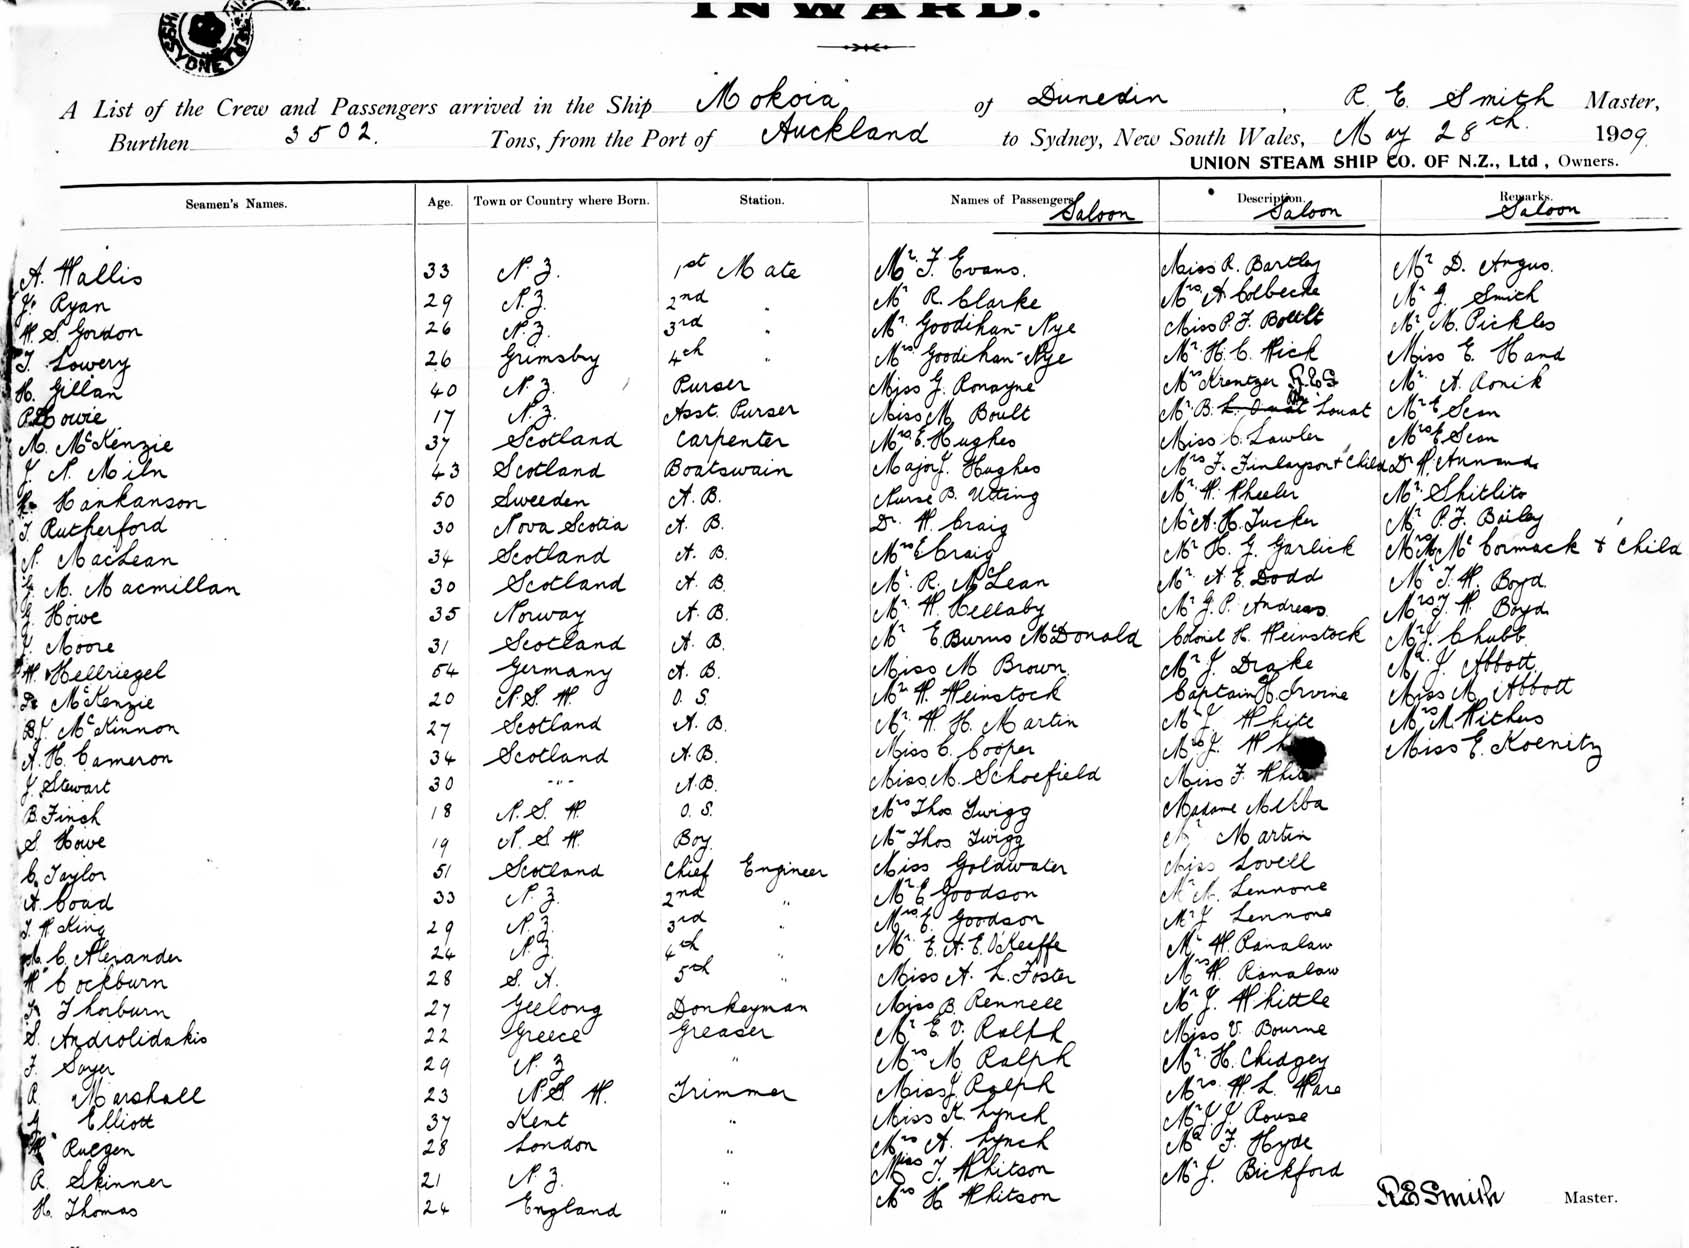 INWARD.
SYDNEY
A List of the Crew and Passengers arrived in the Ship Mokoia of Dunedin, R. E. Smith Master,
Burthen 3502. Tons, from the Port of Auckland to Sydney, New South Wales, May 28th. 1909.
UNION STEAM SHIP CO. OF N.Z., Ltd, Owners.
Seamen's Names. Age. Town or Country where Born. Station. Names of Passengers Saloon Description. Saloon Remarks. Saloon
A. Wallis 33 N.Z. 1st Mate Mr F. Evans. Miss R. Bartley Mr D. Angus.
Ryan 29 N.Z. 2nd " Mr R. Clarke Mrs A. Colbecke Mr J. Smith
W. S. Gordon 26 N.Z. 3rd " Mr. Goodihan-Nye Miss P. F. Mr M. Pickles
T. Lowery 26 Grimsby 4th " Mrs Goodihan-Nye Mr. H. C. Hick Miss E. Hand
H. Gillan 40 N.Z. Purser Miss G. Ronayne Mrs Krentzer R.E.S Mr. A. Ronik
Howie 17 N.Z. Asst. Purser Miss M. Boult Mr. B. Louat Mr E Scan
M. McKenzie 37 Scotland Carpenter Mrs. E. Hughes Miss C. Lawler Mrs E Scan
J. N. Miln 43 Scotland Boatswain Major J. Hughes Mrs F. Finlayson + Child Dr H.
Hankanson 50 Sweeden A. B. Nurse B. Utting Mr W. Wheeler Mr Shitlito
T. Rutherford 30 Nova Scotia A. B. Dr. W. Craig Mr A. H. Tucker Mr P. F. Bailey
N. MacLean 34 Scotland A. B. Mrs E Craig Mr H. G. Garlick McCormack + Child
M. Macmillan 30 Scotland A. B. Mr R. McLean Mr A. E. Dodd Mr T. W. Boyd.
Howe 35 Norway A. B. Mr W Hellaby Mr J. P. Andreas Mrs T. W. Boyd.
Moore 31 Scotland A. B. Mr E Burns McDonald Colonel H. Weinstock Mr J. Chubb.
W. Hellriegel 54 Germany A. B. Miss M Brown Mr J. Drake Mr J. Abbott.
McKenzie 20 N.S.W. O. S. Mr W. Weinstock Captain C. Irvine Miss M. Abbott
McKinnon 27 Scotland A. B. Mr. W. H. Martin Mr J. White Mrs M. Withers
A. H. Cameron 34 Scotland A.B. Miss C. Cooper Mrs J. Wh Miss E. Koenitz
J. Stewart 30 -"- A.B. Miss M. Schoefield Miss F. White
B. Finch 18 N.S.W. O.S. Mrs Thos Twigg Madame Melba
S. Howe 19 N.S.W. Boy. Mr Thos Twigg Martin
C. Taylor 51 Scotland Chief Engineer Miss Goldwater Miss Lovell
A. Coad 33 N.Z. 2nd " Mr E Goodson Mr M. Lennone
T. W King 29 N.Z. 3rd " Mrs E. Goodson Mr J Lennone
C. Alexander 24 N.Z. 4th " Mr. E. A. E. O'Keeffe Mr W. Ranalaw
W. Cockburn 28 S. A. 5th " Miss A. L. Foster Mrs W. Ranalaw
Thorburn 27 Geelong Donkeyman Miss B. Rennell Mr J. Whittle
S. Androlidakis 22 Greece Greaser Mr. E. V. Ralph Miss V. Bourne
F. Sayer 29 N.Z. " Mrs M. Ralph Mr. H. Chidgey
R. Marshall 23 N.S.W. Trimmer Miss J. Ralph Mrs. W. L. Ware
Elliott 37 Kent " Miss K. Lynch Mr J. J. Rouse
W. Ruegen 28 London " Mrs A. Lynch Mr F. Hyde
R. Skinner 21 N.Z. " Miss T. Whitson Mr J. Bickford
H. Thomas 24 England " Mrs H Whitson
R E Smith Master.